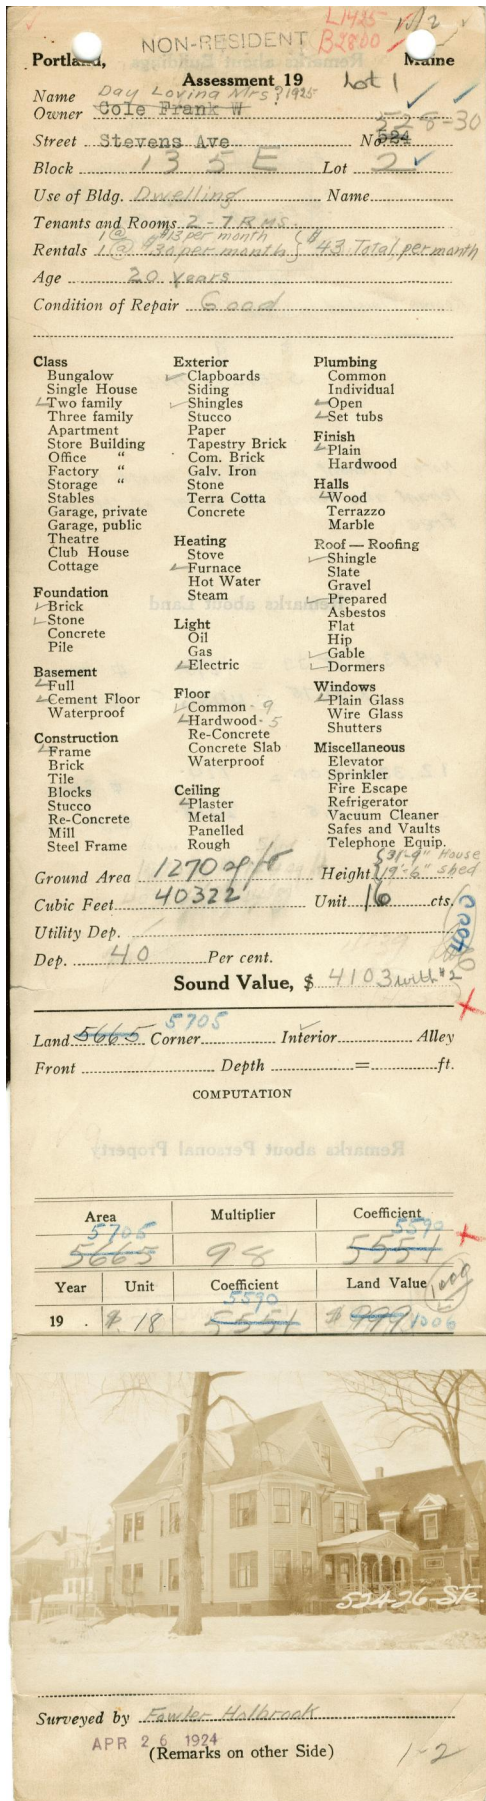 L1425
1/2
NON-RESIDENT B2800
Portland, Maine
Assessment 19 Lot 1
Name Day Loving Mrs ? 1925
Owner Cole Frank W
528-30
Street Stevens Ave No 524
Block 135E Lot 2
Use of Bldg. Dwelling Name
Tenants and Rooms 2-7 RMS.
1 @ $13 per month
Rentals 1 @ 30 per month $43 Total per month
Age 20 Years
Condition of Repair Good
Class
Bungalow
Single House
Two family
Three family
Apartment
Store Building
Office "
Factory "
Storage "
Stables
Garage, private
Garage, public
Theatre
Club House
Cottage
Foundation
Brick
Stone
Concrete
Pile
Basement
Full
Cement Floor
Waterproof
Construction
Frame
Brick
Tile
Blocks
Stucco
Re-Concrete
Mill
Steel Frame
Exterior
Clapboards
Siding
Shingles
Stucco
Paper
Tapestry Brick
Com. Brick
Galv. Iron
Stone
Terra Cotta
Concrete
Heating
Stove
Furnace
Hot Water
Steam
Light
Oil
Gas
Electric
Floor
Common - 9
Hardwood - 5
Re-Concrete
Concrete Slab
Waterproof
Ceiling
Plaster
Metal
Panelled
Rough
Plumbing
Common
Individual
Open
Set tubs
Finish
Plain
Hardwood
Halls
Wood
Terrazzo
Marble
Roof — Roofing
Shingle
Slate
Gravel
Prepared
Asbestos
Flat
Hip
Gable
Dormers
Windows
Plain Glass
Wire Glass
Shutters
Miscellaneous
Elevator
Sprinkler
Fire Escape
Refrigerator
Vacuum Cleaner
Safes and Vaults
Telephone Equip.
Ground Area 1270 Height 31'-9" House 19'-6" shed
Cubic Feet 40322 Unit 16 cts.
Utility Dep.
4000
Dep. 40 Per cent.
Sound Value, $ 4103 with #2
5705
Land 5665 Corner Interior Alley
Front Depth = ft.
COMPUTATION
Area Multiplier Coefficient
5705 5590
5665 98 5551
Year Unit Coefficient Land Value 1000
5590
19 . $ .18 5551 $ 999 1006
524-26-Ste.
Surveyed by Fowler Holbrook
APR 26 1924
(Remarks on other Side) 1-2